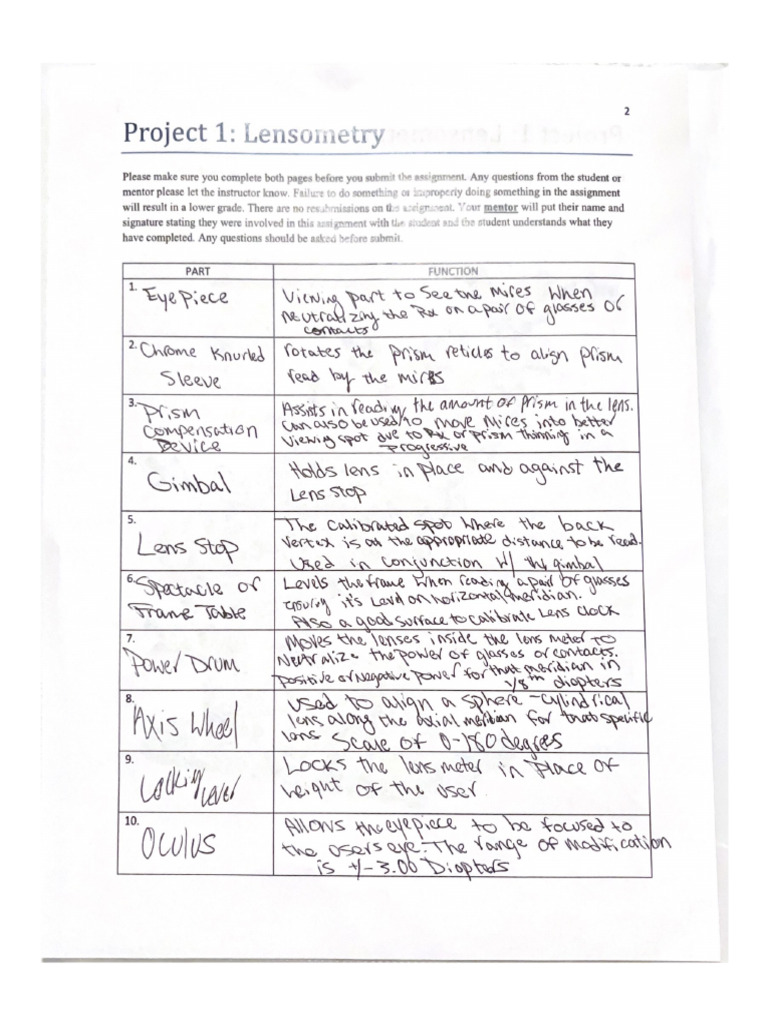 2
Project 1: Lensometry
Please make sure you complete both pages before you submit the assignment. Any questions from the student or
mentor please let the instructor know. Failure to do something or improperly doing something in the assignment
will result in a lower grade. There are no resubmissions on the assignment. Your mentor will put their name and
signature stating they were involved in this assignment with the student and the student understands what they
have completed. Any questions should be asked before submit.
PART
FUNCTION
1. Eye piece
Viewing part to see the mires when
neutralizing the Rx on a pair of glasses or
contacts
2. Chrome Knurled
Sleeve
rotates the prism reticles to align prism
read by the mires
3. Prism
Compensation
Device
Assists in reading the amount of Prism in the lens.
Can also be used to move mires into better
viewing spot due to Rx or prism thinning in a
progressive
4.
Gimbal
Holds lens in place and against the
Lens stop
5.
Lens Stop
The calibrated spot where the back
vertex is at the appropriate distance to be read.
Used in conjunction w/ the gimbal
6. Spectacle or
Frame Table
Levels the frame when reading a pair of glasses
ensuring it's level on horizontal meridian.
Also a good surface to calibrate Lens clock
7.
Power Drum
Moves the lenses inside the lens meter to
Neutralize the power of glasses or contacts.
positive or negative power for that meridian in
1/8th diopters
8.
Axis Wheel
used to align a sphere-cylindrical
lens along the axial meridian for that specific
lens Scale of 0-180 degrees
9.
Locking Lever
Locks the lens meter in place of
height of the user
10.
Oculus
Allows the eyepiece to be focused to
the users eye. The range of modification
is +/- 3.00 Diopters